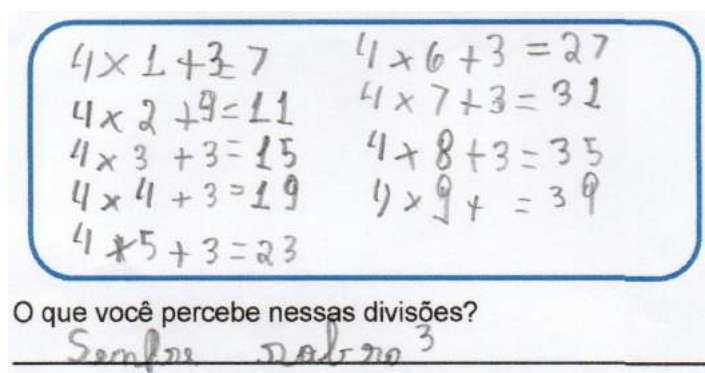 4 x 1 + 3 = 7
4 x 2 + 9 = 11
4 x 3 + 3 = 15
4 x 4 + 3 = 19
4 x 5 + 3 = 23
4 x 6 + 3 = 27
4 x 7 + 3 = 31
4 + 8 + 3 = 35
4 x 9 + = 39
O que você percebe nessas divisões?
Sempre 3